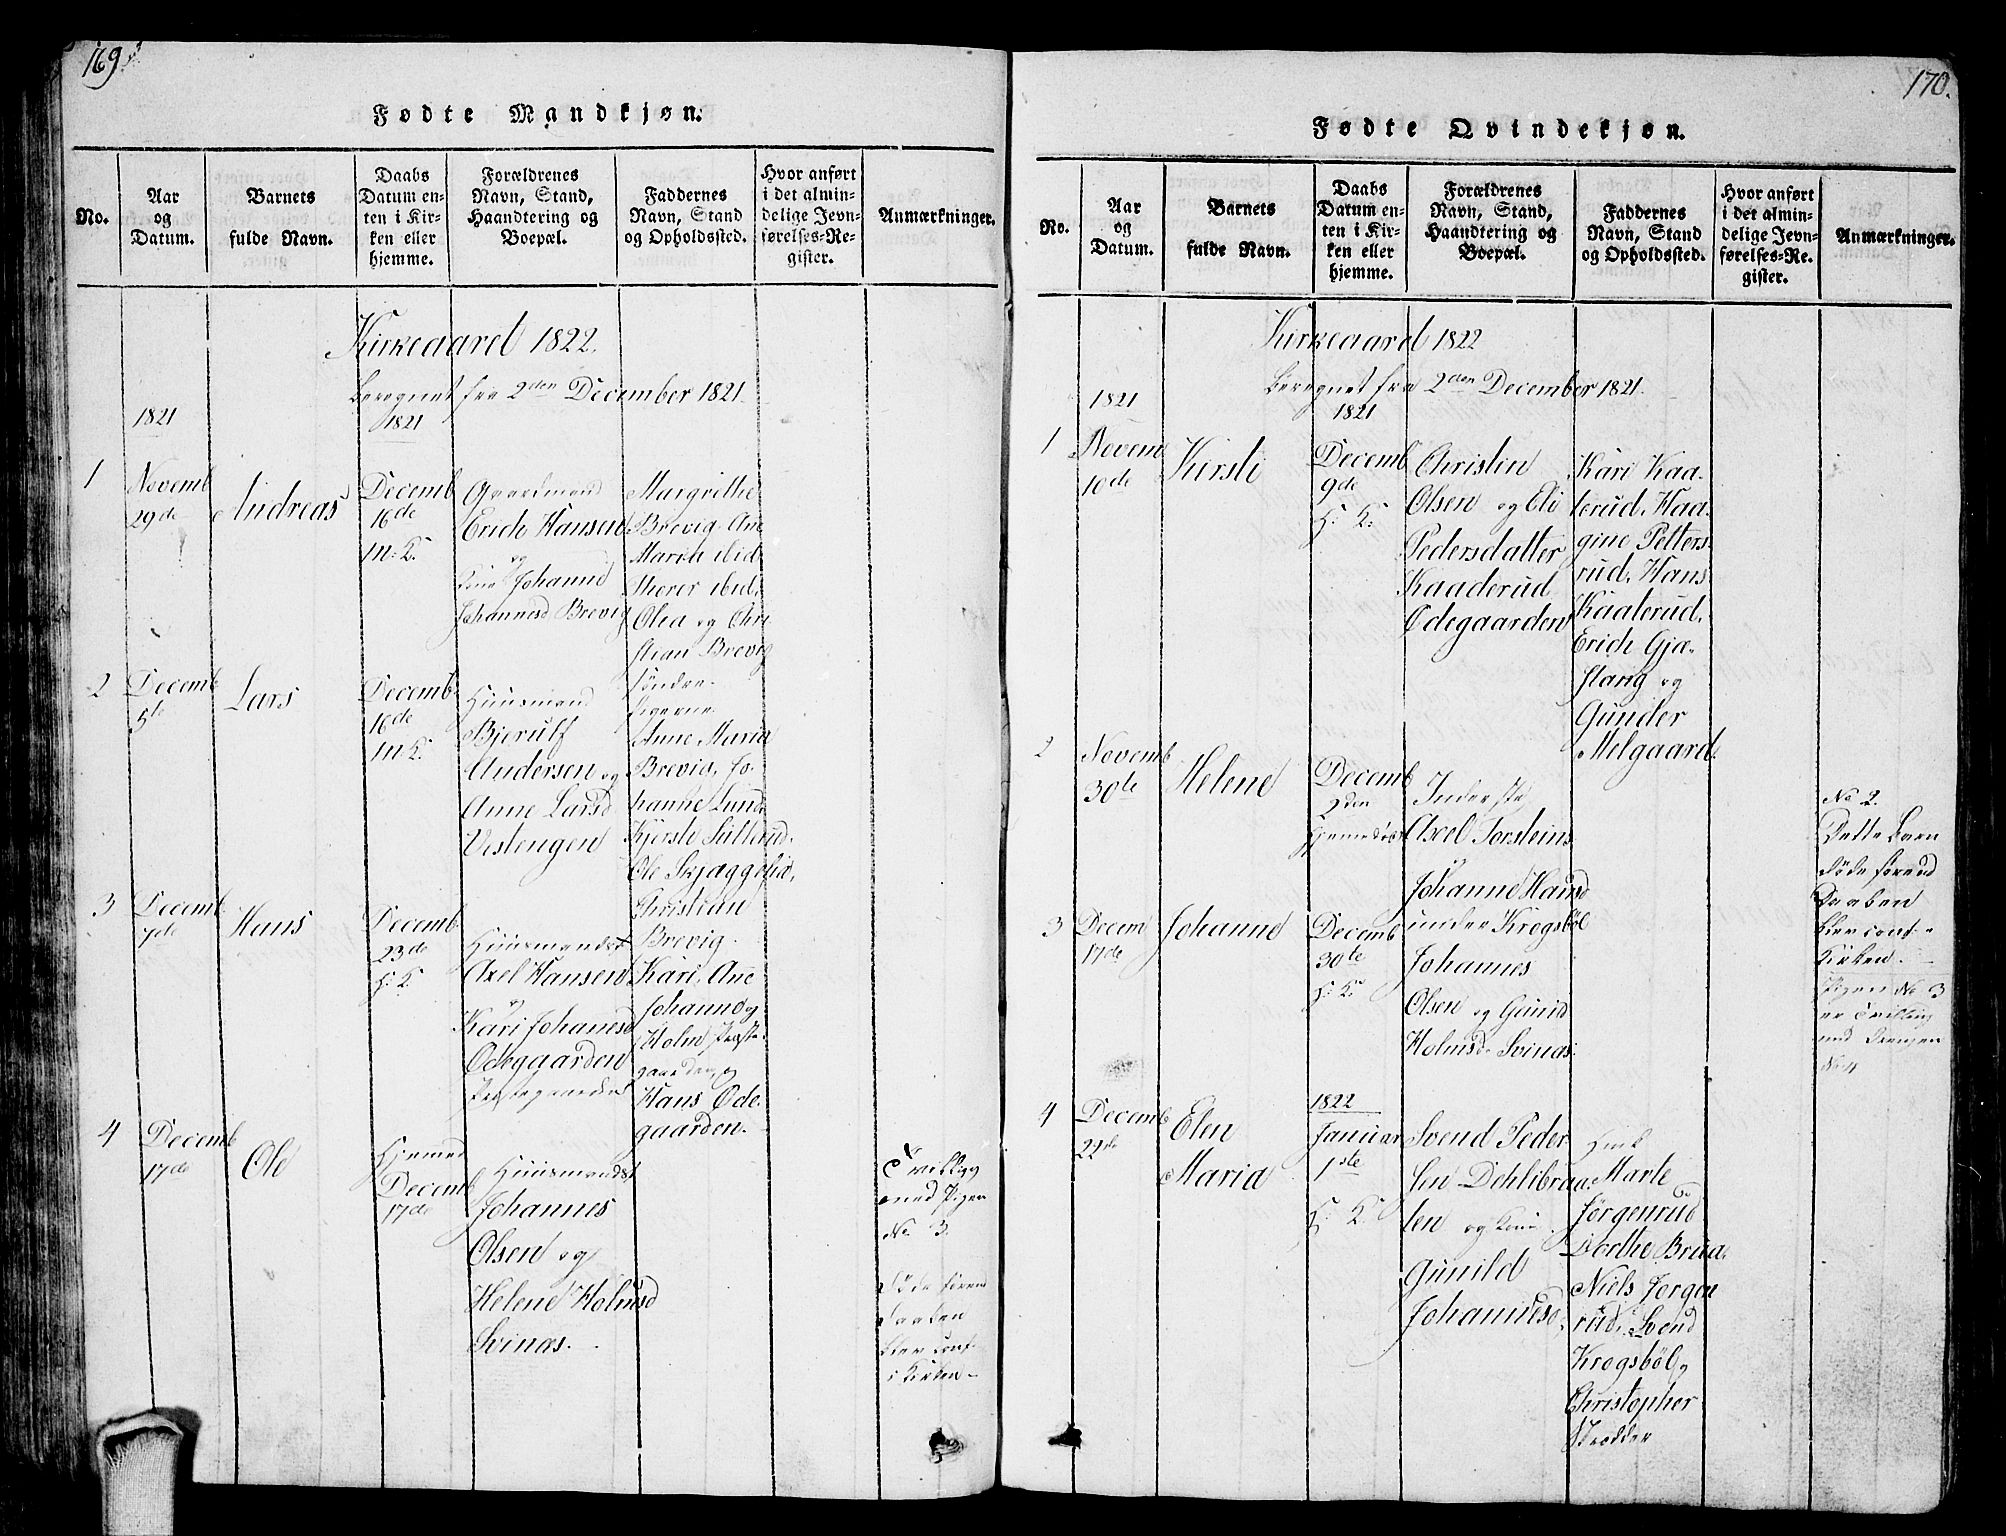 169
Fødte Mandkjøn.
No.
Aar
og
Datum.
Barnets
fulde Navn.
Daabs
Datum en-
ten i Kir-
ken eller
hjemme.
Forældrenes
Navn, Stand,
Haandtering og
Boepæl.
Faddernes
Navn, Stand
og Opholdssted.
Hvor anført
i det almin-
delige Jevn-
førelses-Re-
gister.
Anmærkninger.
Kirkeaaret 1822.
Beregnet fra 2den December 1821.
1821
1821
1
Novemb
29de
Andreas
Decemb
16de
M: K.
Gaardmand
Erich Hansen
og
Kone Johanne
Johannesd Brevig
Margrethe
Brevig, Ane
Maria ibid
Therer ibid,
Olea og Chri
stian Brevig
søndre
2
Decemb
5te
Lars
Decemb
16de
M: K.
Huusmand
Bjerulf
Andersen og
Anne Larsd
Vestengen
Anne Maria
Brevig, Jo-
hanne Lund
Kjerste Sülland
Ole Skjaggelid,
Christian
Brevig.
3
Decemb
7de
Hans
Decemb
23de
H: K.
Huusmandsf
Axel Hansen
og
Kari Johanesd
Odegaarden
Præstegaarden
Kari, Ane
Johanne og
Holm Præste-
gaarden, og
Hans Ode-
gaarden.
4
Decemb
17de
Ole
Hjemme
Decemb
17de
Huusmandsf
Johannes
Olsen og
Helene Holmsd
Svinæs.
Tvilling
med Pigen
No 3.
Døde foren
Daaben
blev conf.
i Kirken
170.
Fødte Qvindekjøn.
No.
Aar
og
Datum.
Barnets
fulde Navn.
Daabs
Datum en-
ten i Kir-
ken eller
hjemme.
Forældrenes
Navn, Stand,
Haandtering og
Boepæl.
Faddernes
Navn, Stand
og Opholdssted.
Hvor anført
i det almin-
delige Jevn-
førelses-Re-
gister.
Anmærkninger.
Kirkeaaret 1822
Beregnet fra 2den December 1821.
1821
1821
1
Novem
10de
Kirsti
Decemb
9de
H: K:
Christen
Olsen og Eli
Pedersdatter
Kaaderud
Odegaarden
Kari Kaa-
terud, Haa-
gine Petters-
rud, Hans
Kaaterud,
Erich Gja-
stang og
Gunder
Melgaard.
2
Novemb
30te
Helene
Decemb
2den
Hjemmedøbt
Inderste
Axel Torsteins
og
Johanne Hansd
under Krogsbøl
No 2.
Dette Barn
døde forend
Daaben
blev conf. i
Kirken.
3
Decem
17de
Johanne
Decemb
30te
H: K.
Johannes
Olsen og Gunid
Holmsd Svinæs.
Pigen No 3
er Tvilling
med Drengen
No 4
4
Decemb
22de
Elen
Maria
1822
Januar
1ste
H: K.
Svend Peder
sen Dehlibraa-
ten og Kone
Gunild
Johannesd.
Marte
Jørgenrud
Dorthe Braa
Niels Jørgen
rud, Svend
Krogsbøl og
Christopher